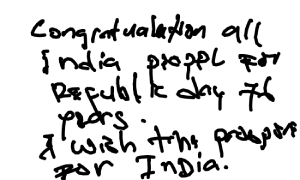 Congratulation all
India propl for
Republik day 76
years.
I wish the prospori
for India.